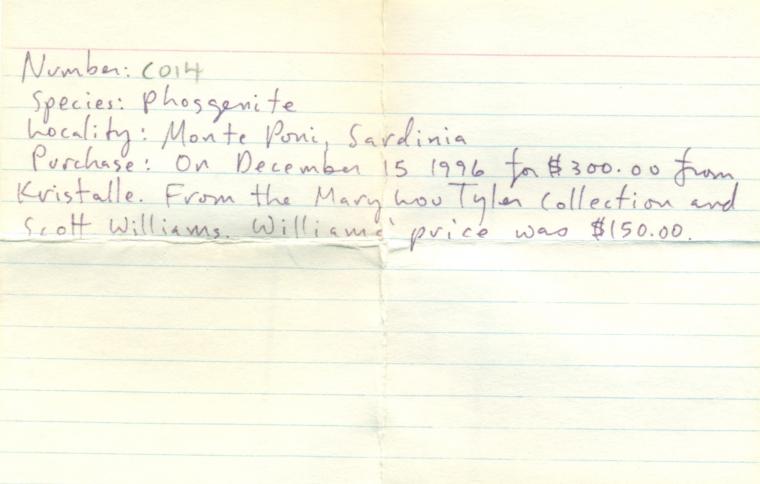 Number: C014
Species: Phosgenite
Locality: Monte Poni, Sardinia
Purchase: On December 15 1996 for $300.00 from
Kristalle. From the Mary Lou Tyler Collection and
Scott Williams. Williams' price was $150.00.